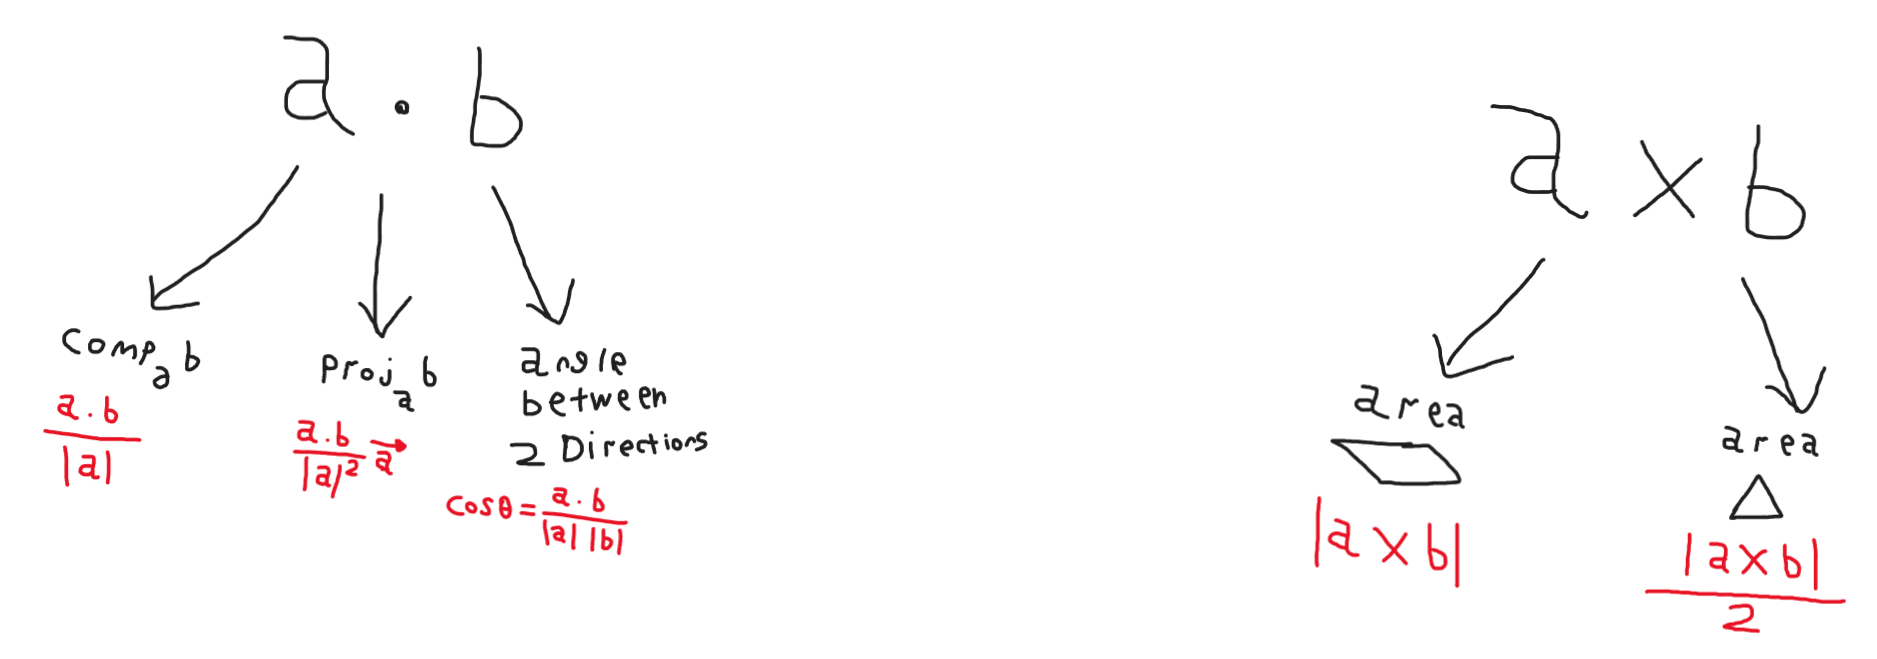 a · b
comp_a b
a.b / |a|
Proj_a b
a.b / |a|² a⃗
angle
between
2 Directions
cosθ = a.b / |a| |b|
a × b
area
|a × b|
area
|a × b| / 2